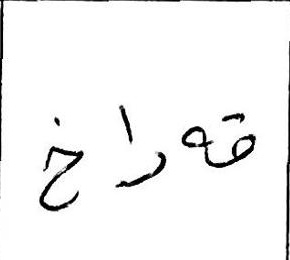 قەراخ